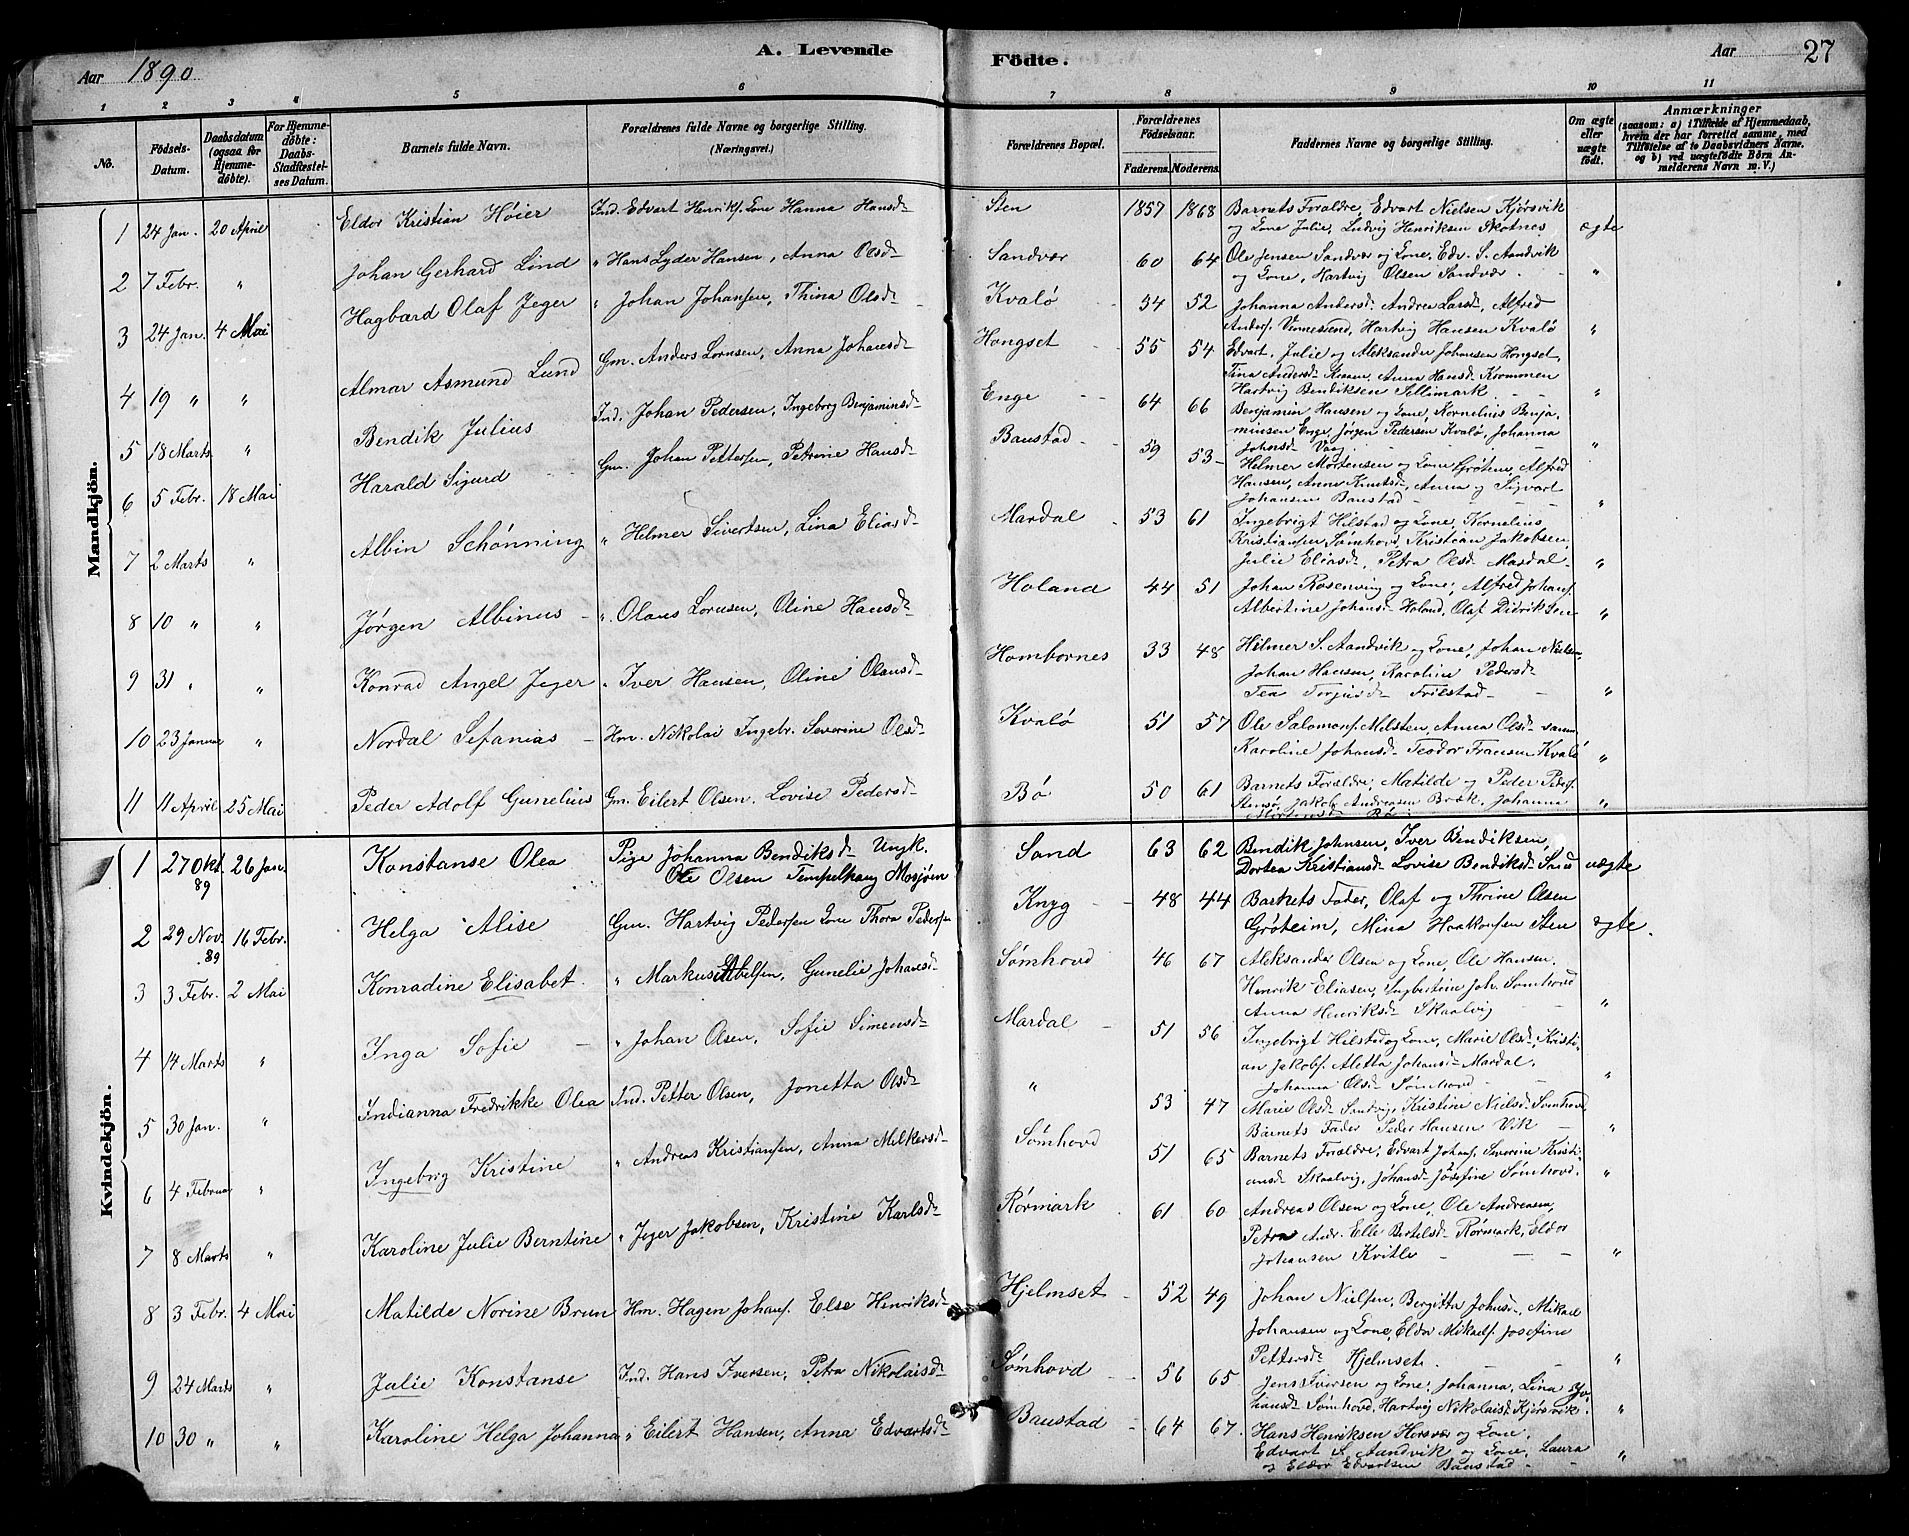 Aar 1890
A. Levende
Födte.
Aar
27
1 2 3 4 5 6 7 8 9 10 11
No.
Födsels-
Datum.
Daabsdatum
(ogsaa for
Hjemme-
döbte).
For Hjemme-
döbte:
Daabs-
Stadfæstel-
ses Datum.
Barnets fulde Navn.
Forældrenes fulde Navne og borgerlige Stilling.
(Næringsvei.)
Forældrenes Bopæl.
Forældrenes
Födselsaar.
Faderens. Moderens.
Faddernes Navne og borgerlige Stilling.
Om ægte
eller
uægte
födt.
Anmærkninger
(saasom: a) i Tilfælde af Hjemmedaab,
hvem der har forrettet samme, med
Tilföielse af to Daabsvidners Navne,
og b) ved uægtefödte Börn An-
melderens Navn m. V.)
Mandkjön.
1 24 Jan. 20 April Eldor Kristian Høier Ind. Edvart Henriks. Kone Hanna Hansd. Sten 1857 1868 Barnets Forældre, Edvart Nielsen Kjørsvik
og Kone Julie, Ludvig Henriksen Skotnes ægte
2 7 Febr. " Johan Gerhard Lind " Hans Lyder Hansen, Anna Olsd. Sandvær 60 64 Ole Jensen Sandvær og Kone, Edv. S. Aandvik
og Kone, Hartvig Olsen Sandvær. "
3 24 Jan. 4 Mai Hagbard Olaf Jeger " Johan Johansen, Thina Olsd. Kvalø 54 52 Johanna Andersd. Andrea Larsd., Alfred
Anders. Vennesund, Hartvig Hansen Kvalø "
4 19 " " Almar Asmund Lund Gm. Anders Lornsen, Anna Johansd. Hongset 55 54 Edvart, Julie og Aleksander Johansen Hongset,
Tina Andersd. Stensen, Anna Hansd. Krommen
Hartvig Bendiksen Sellimark "
5 18 Marts " Bendik Julius Ind. Johan Pedersen, Ingeborg Benjaminsd. Enge 64 66 Benjamin Hansen og Kone, Kornelius Benja-
minsen Enge, Jørgen Pedersen Kvalø, Johanna
Johnsd. Vaag "
6 5 Febr. 18 Mai Harald Sigurd Gm. Johan Pettersen, Petrine Hansd. Baustad 59 53 Helmer Mortensen og Kone Grøthem, Alfred
Hansen, Anne Knutsd., Anna og Sigvart
Johansen Baustad "
7 2 Marts " Albin Schønning " Helmer Sivertsen, Lina Eliasd. Mardal 53 61 Ingebrigt Hilstad og Kone, Kornelius
Kristiansen Sømhovd, Kristian Jakobsen,
Julie Eliasd., Petra Olsd. Mardal "
8 10 " " Jørgen Albinus " Olaus Lornsen, Oline Hansd. Holand 44 51 Johan Rosenving og Kone, Alfred Johans.
Albertine Johansd. Holand, Olaf Didriksen "
9 31 " " Konrad Angel Jeger " Iver Hansen, Oline Olausd. Hombornes 33 48 Hilmer S. Aandvik og Kone, Johan Nielsen,
Johan Hansen, Karoline Pedersd.
Tea Torgusd. Trælstad "
10 23 Januar " Nordal Sefanias Hm. Nikolai Ingebr. Severine Olsd. Kvalø 51 57 Ole Salomons. Melsten, Anna Olsd. samm.
Karoline Johansd. Teodor Fransen Kvalø "
11 11 April 25 Mai Peder Adolf Gunelius Gm. Eilert Olsen. Lovise Pedersd. Bø 50 61 Barnets Forældre, Matilde og Peder Peders.
Stensø, Jakob Andreasen Bræk. Johanna
Bø "
Kvindekjön.
1 27 Okt. 89 26 Jan. Konstanse Olea Pige Johanna Bendiksd. Ungk.
Ole Olsen Tempelhaug Mosjøen Sand 63 62 Bendik Johnsen, Iver Bendiksen,
Dortea Kristiansd. Lovise Bendiksd. Sand uægte
2 29 Nov. 89 16 Febr. Helga Alise Gm. Hartvig Pedersen Kone Thora Pedersen Knyg 48 44 Barnets Fader, Olaf og Thrine Olsen
Grøteim, Mina Haakonsen Sten ægte.
3 3 Febr. 2 Mai Konradine Elisabet. " Markus Abelsen, Gunelie Johansd. Sømhovd 46 67 Aleksander Olsen og Kone, Ole Hansen.
Henrik Eliasen, Ingbertine Joh. Sømhovd
Anna Henriksd. Skaalvig "
4 14 Marts " Inga Sofie " Johan Olsen, Sofie Simensd. Mardal 51 56 Ingebrigt Hilstad og Kone, Marie Olsd., Kristi-
an Jakobs. Aletta Johansd. Mardal.
Johanna Olsd. Sømhovd "
5 30 Jan. " Indianna Fredrikke Olea Ind. Petter Olsen, Jonetta Olsd. " 53 47 Marie Olsd. Sandvig, Kristine Nielsd. Sømhovd,
Barnets Fader Peder Hansen Vik "
6 4 Februar " Ingeborg Kristine " Andreas Kristiansen, Anna Milkersd. Sømhovd 51 65 Barnets Forældre, Edvart Johans. Severine Kristi-
ansd. Skaalvig, Johansd. Josefine Sømhovd. "
7 8 Marts " Karoline Julie Berntine " Jeger Jakobsen, Kristine Karlsd. Rørmark 61 60 Andreas Olsen og Kone, Ole Andreasen,
Petra Andr. Elle Bertelsd. Rørmark, Eldor
Johansen Kvitle "
8 3 Febr. 4 Mai Matilde Norine Brun Hm. Hagen Johans. Else Henriksd. Hjelmset 52 49 Johan Nielsen, Bergitta Johnsd., Mikael
Johansen og Kone, Eldor Mikaels. Josefine
Pettersd. Hjelmset. "
9 24 Marts " Julie Konstanse Ind. Hans Iversen, Petra Nikolaisd. Sømhovd 56 65 Jens Iversen og Kone, Johanna, Lina
Sømhovd, Hartvig Nikolaisd. Kjørsvik. "
10 30 " " Karoline Helga Johanna " Eilert Hansen, Anna Edvartsd. Baustad 64 67. Hans Henriksen Horsvær og Kone,
Edvart S. Aandvik og Kone, Laura
og Eldor Edvartsen Baustad "